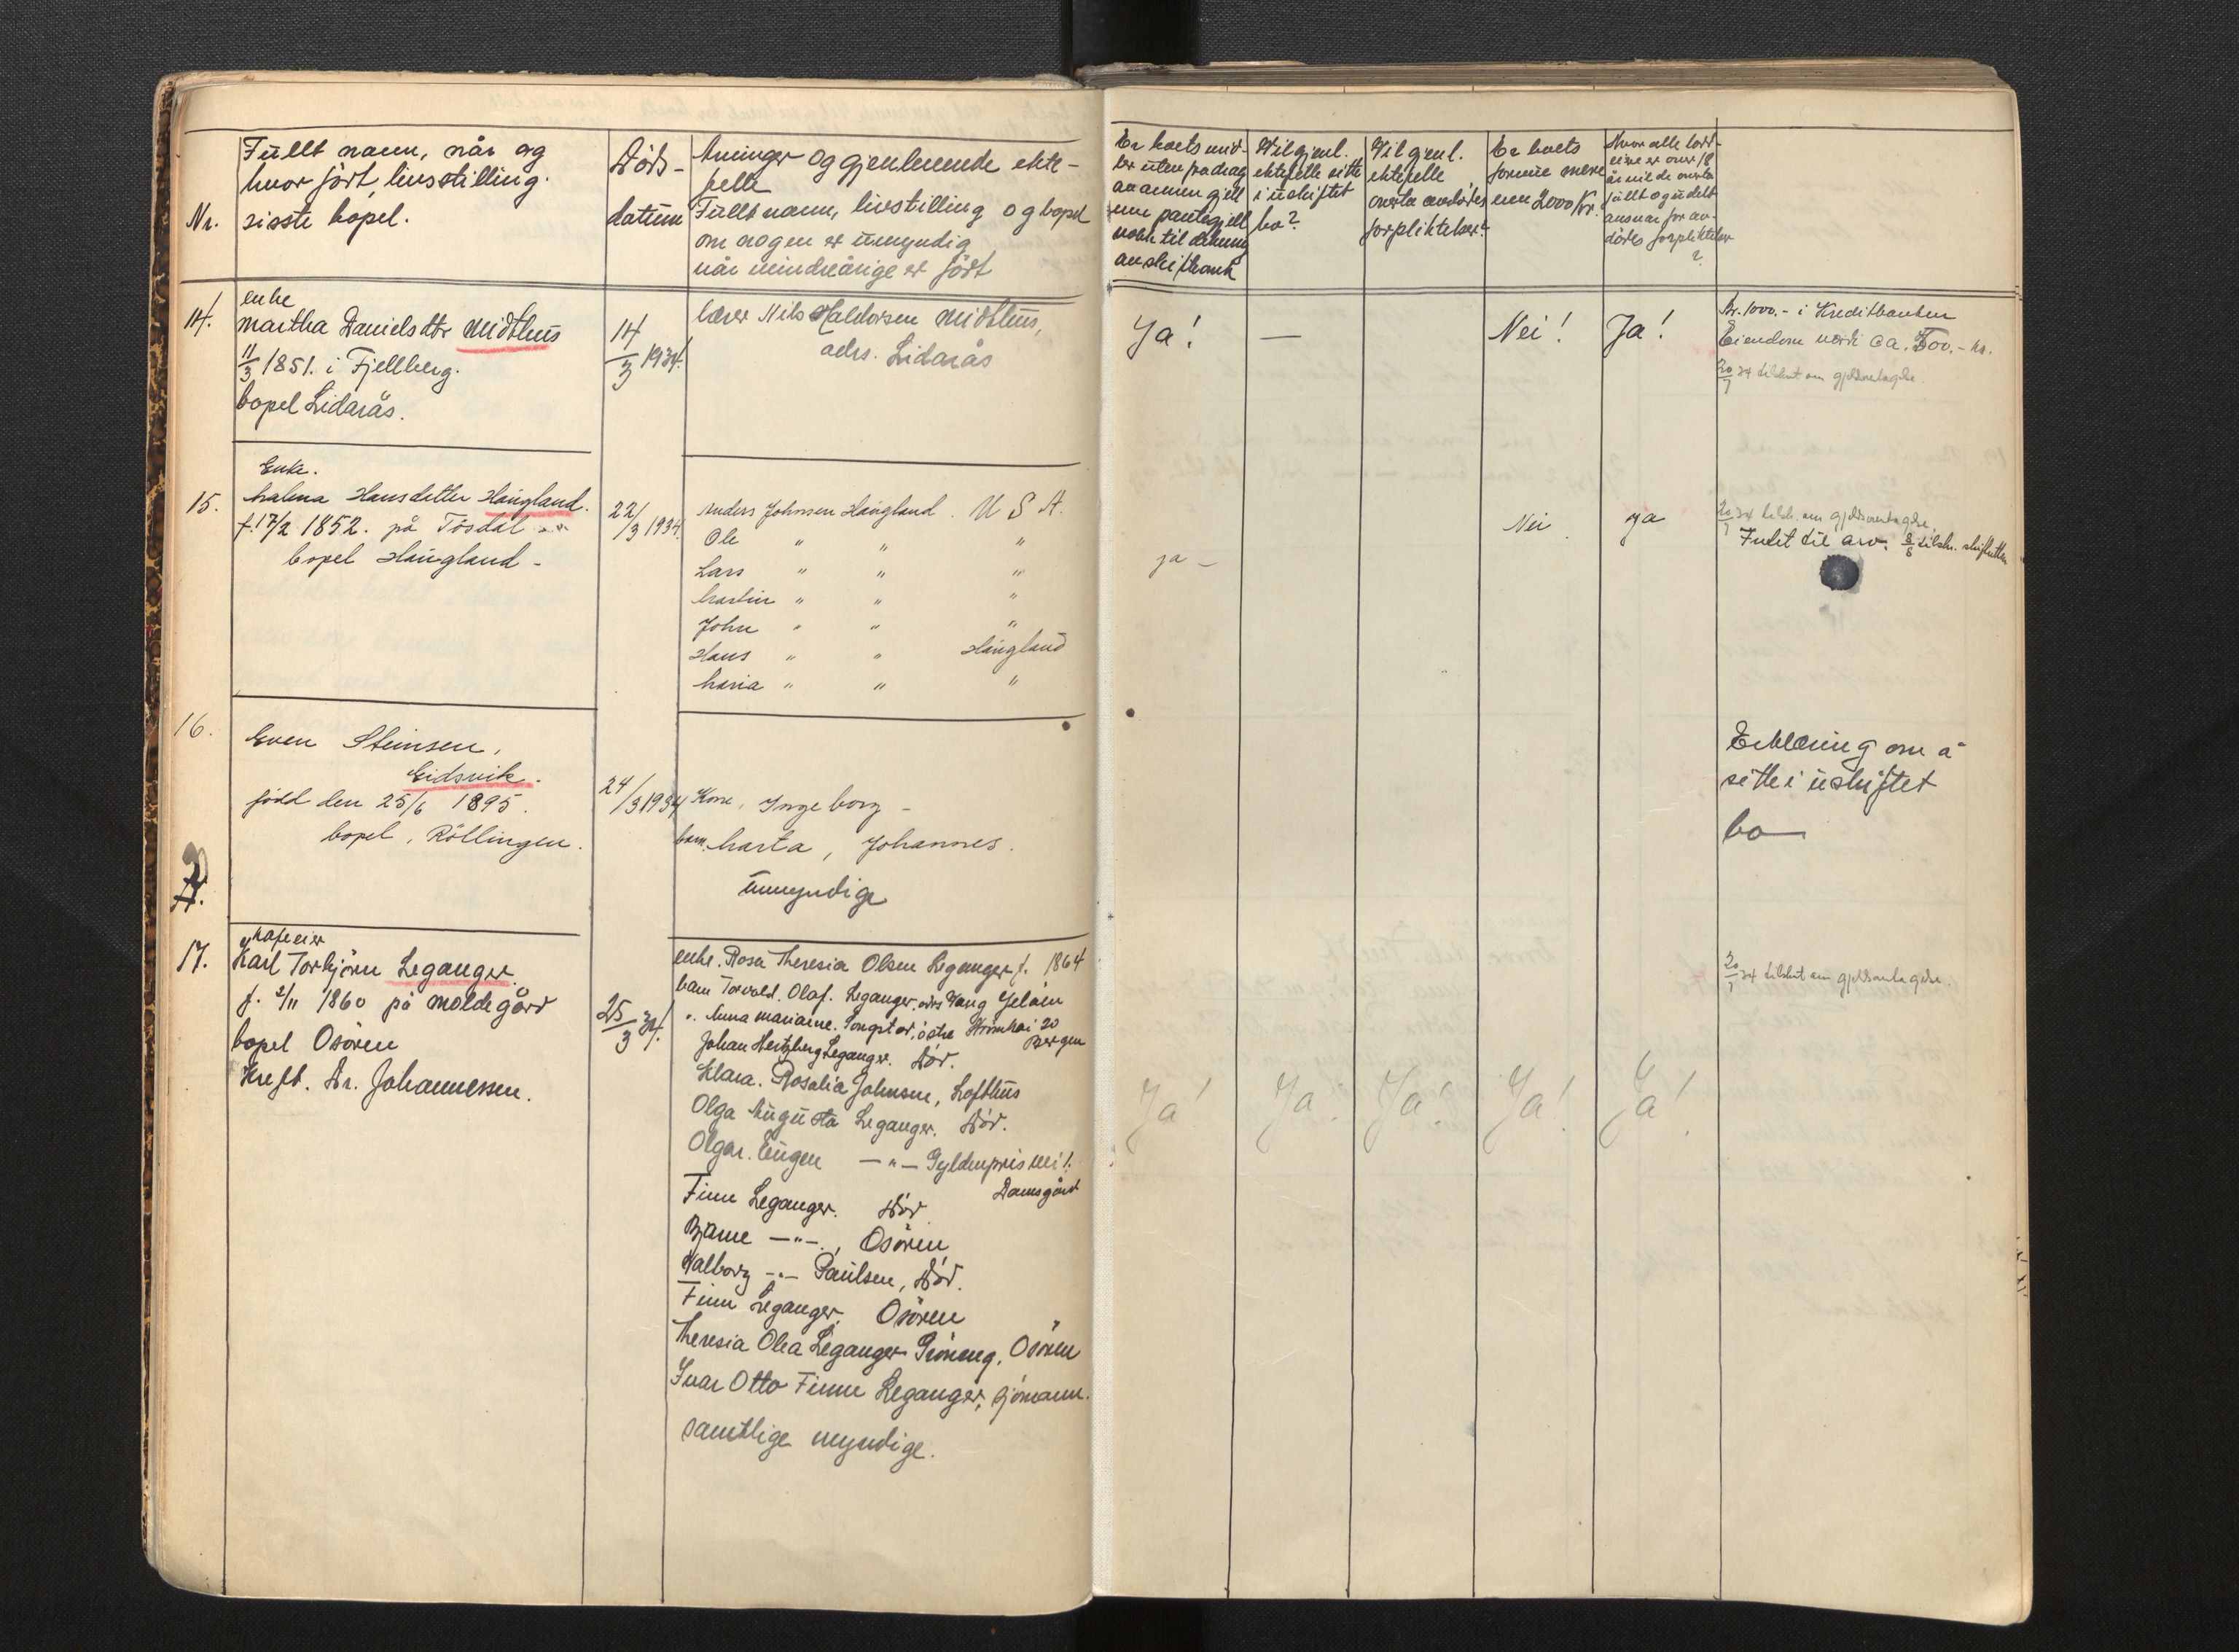 Nr.
Fullt navn, når og
hvor födt, livsstilling.
sisste bopel.
Döds-
datum
Arvinger og gjenlevende ekte-
felle
Fullt navn, livstilling og bopel
om nogen er umyndig
når mindreårige er födt
Er boets mid-
ler uten fradrag
av annen gjell
enn pantegjell
nokk til dekning
av
Vil gjenl.
ektefelle sitte
i uskiftet
bo?
Vil gjenl.
ektefelle
overta avdödes
forpliktelser?
Er boets
formue mere
enn 2000 Kr.
Hvor alle lodd-
eiere er over 18
år vil de overta
fullt og udelt
ansvar for av-
dödes forpliktelser
?
14.
enke
Martha Danielsdtr Midthus
11/3 1851. i Fjellberg.
bopel Lidarås.
14/3 1934.
lærer Nils Haldorsen Midthus,
adrs. Lidarås
Ja!
—
Nei!
Ja!
Kr. 1000.- i Kreditbanken
Eiendom verdi ca. 500.- kr.
20/7 34 tilslut om gjeldsovertagelse.
15.
Enke.
Malena Hansdatter Haugland.
f. 17/2 1852. på Tösdal
bopel Haugland -
22/3 1934.
Anders Johnsen Haugland. U S A.
Ole " " "
Lars " " "
Martin " " "
John " " "
Hans " " Haugland
Maria " " "
ja -
Nei.
ja
20/7 34 tilsl. om gjeldsovertagelse.
Intet til arv. 8/8 tilskr. skifteretten
16.
Even Steinsen,
Eidsvik.
född den 25/6 1895.
bopel, Röllingen.
24/3 1934
Kone, Ingeborg -
barn. Marta, Johannes.
umyndige
Erklæring om å
sitte i uskiftet
bo
17.
kafeeier
Karl Torbjörn Leganger.
f. 2/11 1860 på Moldegård
bopel Osören
Kreft. Dr. Johannessen.
25/3 34.
enke. Rosa Theresia Olsen Leganger f. 1864
barn Torvald. Olaf. Leganger, adrs Vang Jelöen
". Anna Marianne. Songstad, östre 20
Bergen
Johan Hertzberg Leganger. död.
Klara. Rosalia Johnsen, Lofthus
Olga Augusta Leganger. död.
Olgar. Eugen —"— Gyldenpris vei 1.
Damsgård
Finn Leganger. död
Bjarne —"—, Osören
Valborg —"— Paulsen, död.
Finn Leganger. Osören
Theresia Olea Leganger Gröning, Osören
Ivar Otto Finn Leganger, sjömann.
samtlige myndige.
Ja!
Ja.
Ja
Ja!
Ja!
20/7 34 tilslut om gjeldsovertagelse.